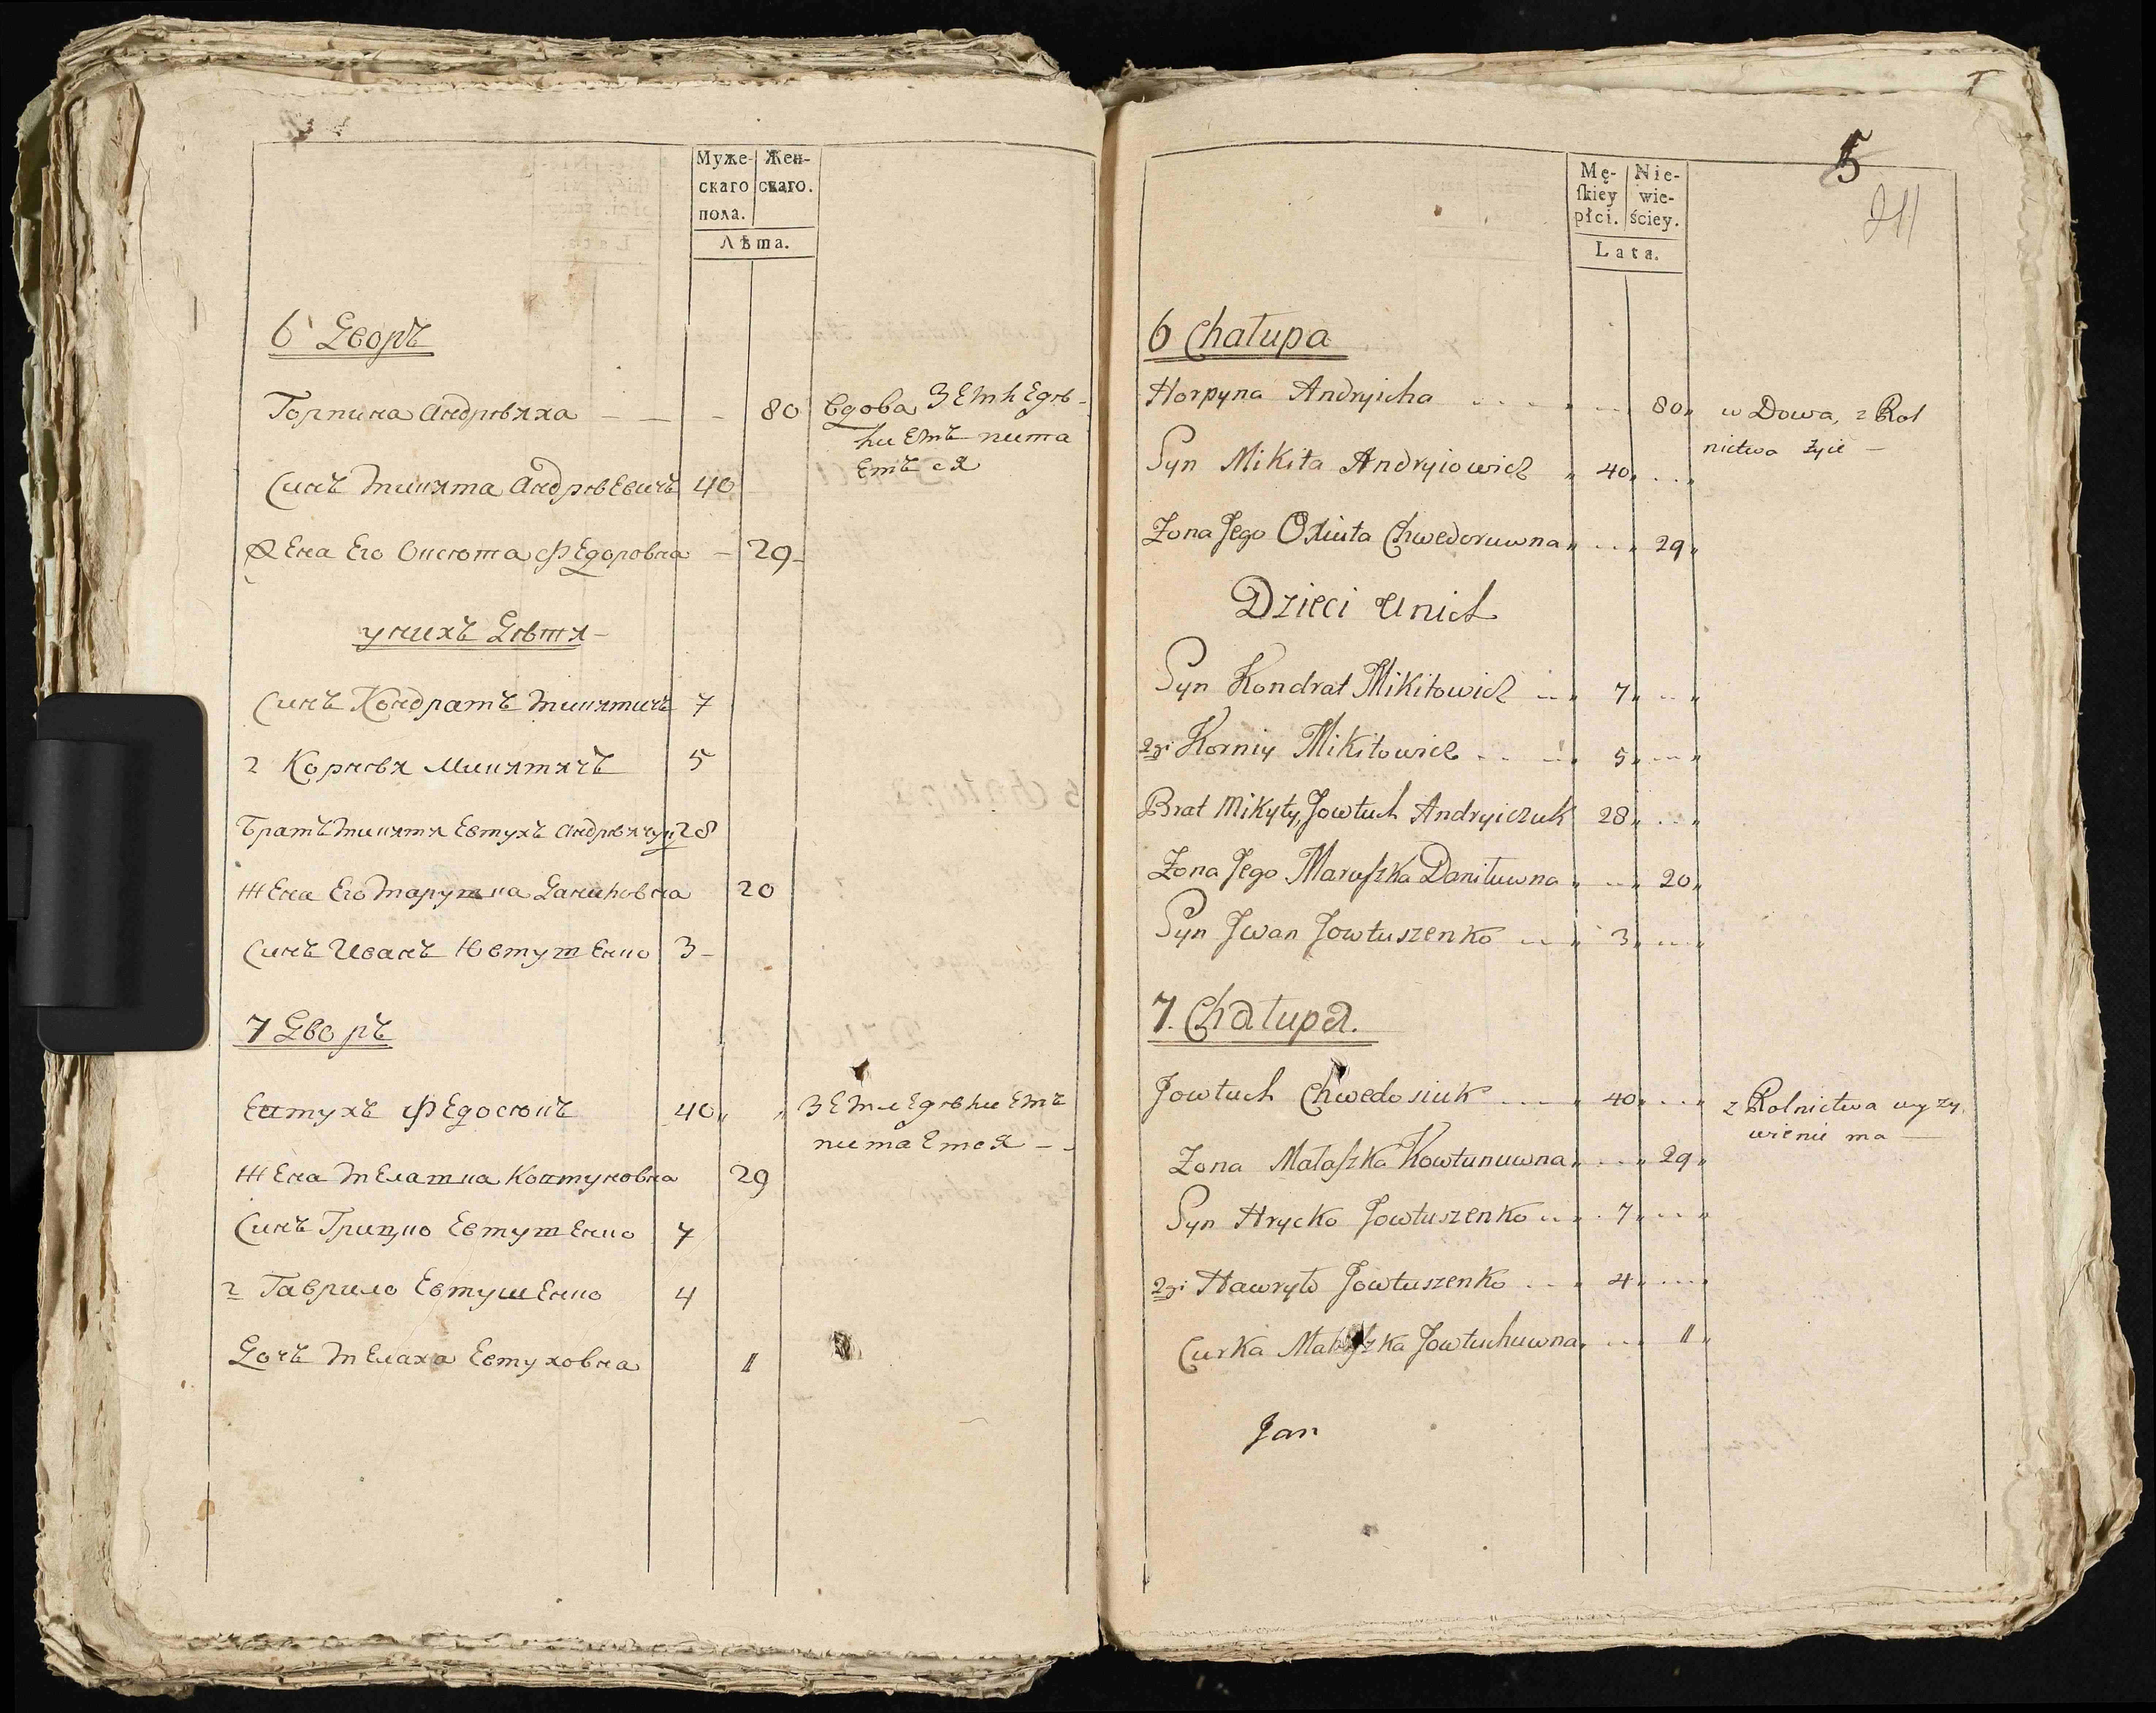 Муже-
скаго
пола.
Жен-
скаго.
Лѣта.
6 Дворъ
Горпина Андрѣяха — — - 80 Вдова Земледѣ-
лиемъ пита
Синъ Микита Андрѣевичъ 40 емъся
Жена Его Оксюта Федоровна - 29
у нихъ Дѣти
Синъ Кондратъ Микитичъ 7
2 Корнѣй Микитичъ 5
Братъ Микити Евтухъ Андрѣячук 28
Жена Его Марушка Даниловна 20
Синъ Иванъ Ювтушенко 3
7 Дворъ
Евтухъ Федосюкъ 40 Земледѣлиемъ
питаемся
Жена Мелашка Ковтуновна 29
Синъ Грицко Евтушенко 7
2 Гаврило Евтушенко 4
Дочъ Мелаха Евтуховна 11
5
Mę-
ſkiey
płci.
Nie-
wie-
ściey.
Lata.
6 Chałupa
Horpyna Andryicha 80 w Dowa, z Rol
nictwa żyie
Syn Mikita Andryiowicz 40
Zona Jego Oxiuta Chwedoruwna 29
Dzieci Unich
Syn Kondrat Mikitowicz 7
2gi Korniy Mikitowicz 5
Brat Mikyty, Jowtuch Andryiczuk 28
Zona Jego Maruſzka Daniłuwna 20
Syn Jwan Jowtuszenko 3
7. Chałupa.
Jowtuch Chwedosiuk 40 z Rolnictwa wyży
wienie ma
Zona Małaſzka Kowtunuwna 29
Syn Hrycko Jowtuszenko 7
2gi Hawryło Jowtuszenko 4
Curka Małaſzka Jowtuchuwna 11
Jan